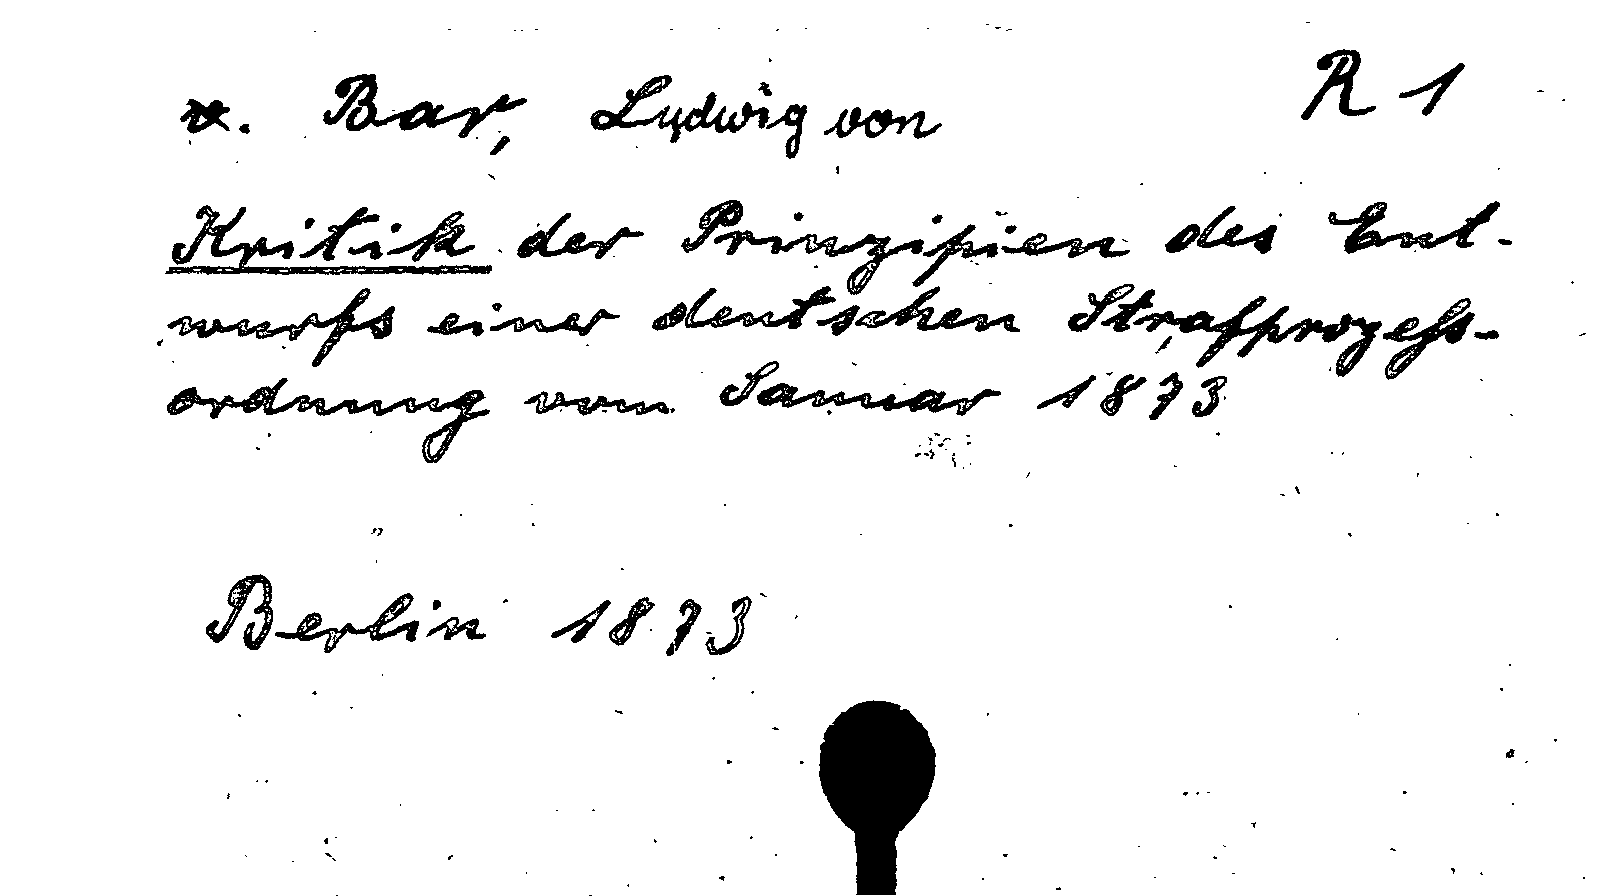 v. Bar, Ludwig von R 1
Kritik der Prinzipien des Ent-
wurfs einer deutschen Strafprozeß-
ordnung vom Januar 1873
Berlin 1873